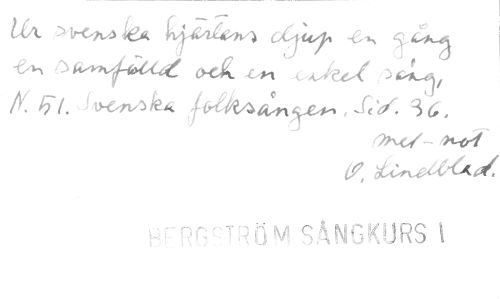 Ur svenska hjärtans djup en gång
en samfälld och en enkel sång,
N. 51. Svenska folksången. Sid. 36.
mel-not
O. Lindblad.
BERGSTRÖM SÅNGKURS I